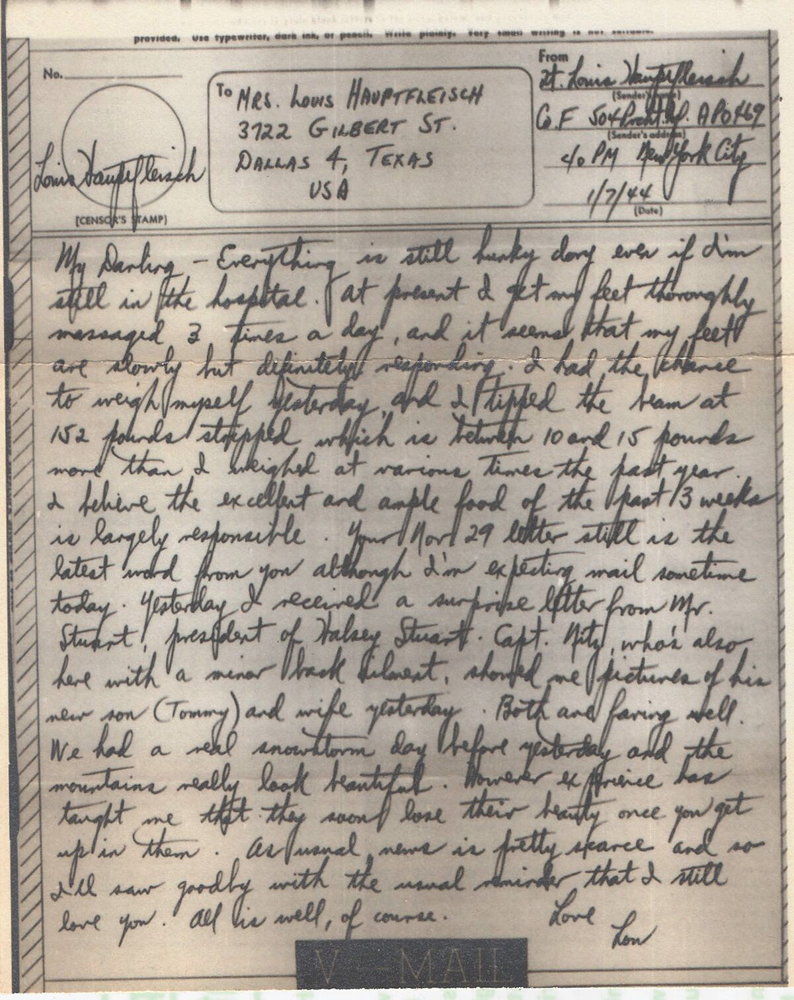 provided. Use typewriter, dark ink, or pencil. Write plainly. Very small writing is not suitable.
No.
To
MRS. LOUIS HAUPTFLEISCH
3722 GILBERT ST.
DALLAS 4, TEXAS
USA
Louis Hauptfleisch
[CENSOR'S STAMP]
From
Lt. Louis Hauptfleisch
(Sender's name)
Co. F 504 Prcht. APO 469
(Sender's address)
c/o PM New York City
1/7/44
(Date)
My Darling - Everything is still hunky dory even if I'm
still in the hospital. At present I get my feet thoroughly
massaged 3 times a day, and it seems that my feet
are slowly but definitely responding. I had the chance
to weigh myself yesterday, and I tipped the beam at
152 pounds stripped which is between 10 and 15 pounds
more than I weighed at various times the past year.
I believe the excellent and ample food of the past 3 weeks
is largely responsible. Your Nov 29 letter still is the
latest word from you although I'm expecting mail sometime
today. Yesterday I received a surprise letter from Mr.
Stuart, president of Halsey Stuart. Capt. Nitz, who's also
here with a minor back ailment, showed me pictures of his
new son (Tommy) and wife yesterday. Both are faring well.
We had a real snowstorm day before yesterday and the
mountains really look beautiful. However experience has
taught me that they soon lose their beauty once you get
up in them. As usual, news is pretty scarce and so
I'll saw goodby with the usual reminder that I still
love you. All is well, of course. Love
Lou
V-MAIL